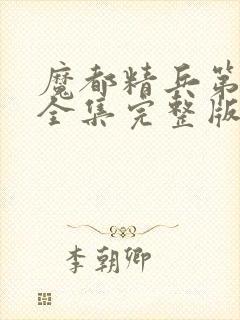 魔都精兵第
全集完整版
李朝卿